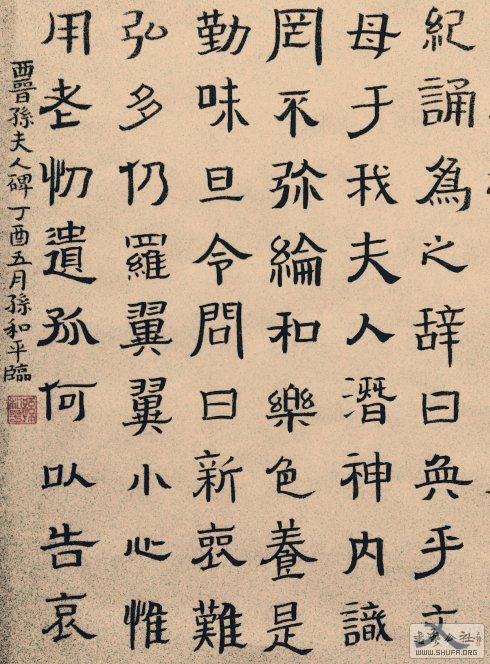 紀誦為之辭曰奐乎文
母于我夫人潛神内識
罔不弥綸和樂色養是
勤味旦令問曰新哀難
弘多仍羅翼翼小心惟
用老忉遺孤何以告哀
西晉孫夫人碑丁酉五月孫和平臨
WWW.SHUFA.ORG